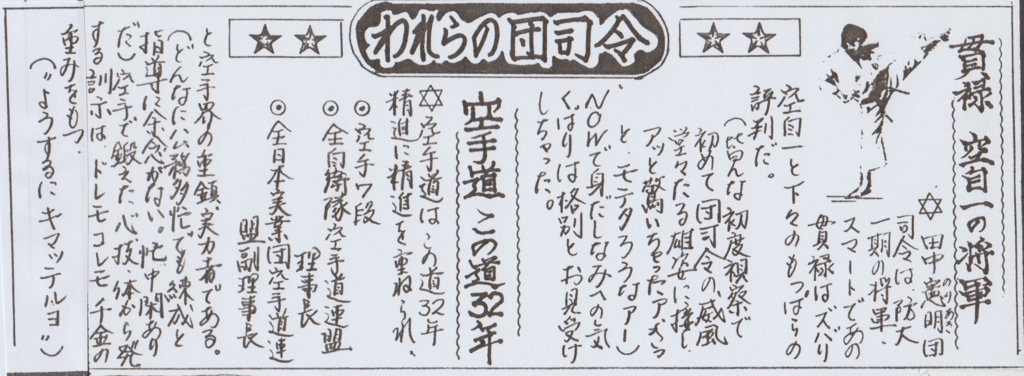 われらの団司令
貫禄 空自一の将軍
☆ 田中憲明団
司令は、防大
一期の将軍、
スマートであの
貫禄は、ズバリ
空自一と下々のもっぱらの
評判だ。
(皆んな初度視察で
初めて団司令の威風
堂々たる雄姿に接し
アッと驚いちゃったアそら
と、モテタろうなァー)
NOWで身だしなみへの気
くばりは格別とお見受け
しちゃった。
空手道 この道32年
☆空手道はこの道32年
精進に精進を重ねられ、
◎空手7段
◎全自衛隊空手道連盟
理事長
◎全日本実業団空手道連
盟副理事長
と空手界の重鎮、実力者である。
(どんなに公務多忙でも錬成と
指導に余念がない。忙中閑あり
だ)空手で鍛えた心・技・体から発
する訓示は、ドレモコレモ千金の
重みをもつ
("ようするにキマッテルヨ")